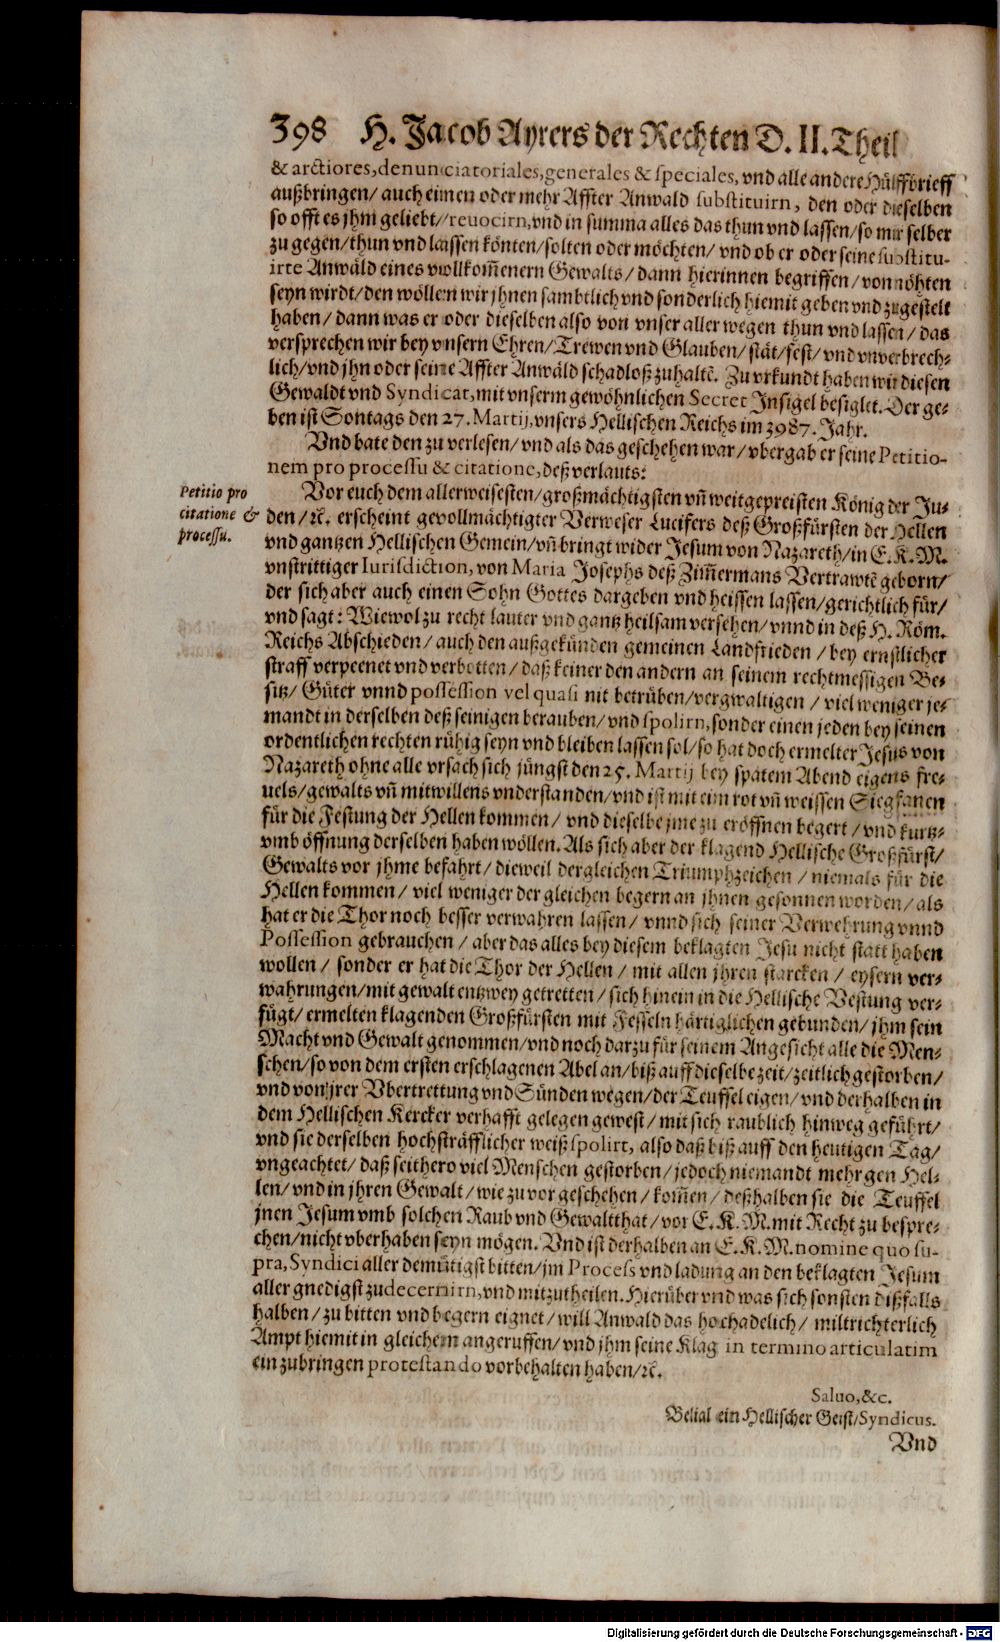 398 H. Jacob Ayrers der Rechten D. II. Theil
& arctiores, denunciatoriales, generales & speciales, vnd alle andere Hülffbrieff
außbringen/ auch einen oder mehr Affter Anwald substituirn, den oder dieselben
so offt es jhm geliebt/ reuocirn, vnd in summa alles das thun vnd lassen/ so mir selber
zu gegen/ thun vnd lassen könten/ solten oder möchten/ vnd ob er oder seine substitu-
irte Anwäld eines vollkom̃enern Gewalts/ dann hierinnen begriffen/ von nöhten
seyn wirdt/ den wöllen wir jhnen sambtlich vnd sonderlich hiemit geben vnd zugestelt
haben/ dann was er oder dieselben also von vnser aller wegen thun vnd lassen/ das
versprechen wir bey vnsern Ehren/ Trewen vnd Glauben/ stät/ fest/ vnd vnverbrech-
lich/ vnd jhn oder seine Affter Anwäld schadloß zuhaltẽ. Zu vrkundt haben wir diesen
Gewaldt vnd Syndicat, mit vnserm gewöhnlichen Secret Insigel besiglet. Der ge-
ben ist Sontags den 27. Martij, vnsers Hellischen Reichs im 3987. Jahr.
Vnd bate den zu verlesen/ vnd als das geschehen war/ vbergab er seine Petitio-
nem pro processu & citatione, deß verlauts:
Petitio pro
citatione &
processu.
Vor euch dem allerweisesten/ großmächtigsten vñ weitgepreisten König der Ju-
den/ ꝛc. erscheint gevollmächtigter Verweser Lucifers deß Großfürsten der Hellen
vnd gantzen Hellischen Gemein/ vñ bringt wider Jesum von Nazareth/ in E. K. M.
vnstrittiger Iurisdiction, von Maria Josephs deß Zim̃ermans Vertrawtẽ geborn/
der sich aber auch einen Sohn Gottes dargeben vnd heissen lassen/ gerichtlich für/
vnd sagt: Wiewol zu recht lauter vnd gantz heilsam versehen/ vnnd in deß H. Röm.
Reichs Abschieden/ auch den außgekünden gemeinen Landfrieden/ bey ernstlicher
straff verpeenet vnd verbotten/ daß keiner den andern an seinem rechtmessigen Be-
sitz/ Güter vnnd possession vel quasi nit betrüben/ vergwaltigen/ viel weniger je-
mandt in derselben deß seinigen berauben/ vnd spolirn, sonder einen jeden bey seinen
ordentlichen rechten rühig seyn vnd bleiben lassen sol/ so hat doch ermelter Jesus von
Nazareth ohne alle vrsach sich jüngst den 25. Martij bey spatem Abend eigens fre-
uels/ gewalts vñ mitwillens vnderstanden/ vnd ist mit eim rot vñ weissen Siegfanen
für die Festung der Hellen kommen/ vnd dieselbe jme zu eröffnen begert/ vnd kurtz-
vmb öffnung derselben haben wöllen. Als sich aber der klagend Hellische Großfürst/
Gewalts vor jhme befahrt/ dieweil dergleichen Triumphzeichen/ niemals für die
Hellen kommen/ viel weniger der gleichen begern an jhnen gesonnen worden/ als
hat er die Thor noch besser verwahren lassen/ vnnd sich seiner Verwehrung vnnd
Possession gebrauchen/ aber das alles bey diesem beklagten Jesu nicht statt haben
wollen/ sonder er hat die Thor der Hellen/ mit allen jhren starcken/ eysern ver-
wahrungen/ mit gewalt entzwey getretten/ sich hinein in die Hellische Vestung ver-
fügt/ ermelten klagenden Großfürsten mit Fesseln härtiglichen gebunden/ jhm sein
Macht vnd Gewalt genommen/ vnd noch darzu für seinem Angesicht alle die Men-
schen/ so von dem ersten erschlagenen Abel an/ biß auff dieselbe zeit/ zeitlich gestorben/
vnd von jrer Vbertrettung vnd Sünden wegen/ der Teuffel eigen/ vnd derhalben in
dem Hellischen Kercker verhafft gelegen gewest/ mit sich raublich hinweg geführt/
vnd sie derselben hochsträfflicher weiß spolirt, also daß biß auff den heutigen Tag/
vngeachtet/ daß seithero viel Menschen gestorben/ jedoch niemandt mehr gen Hel-
len/ vnd in jhren Gewalt/ wie zuvor geschehen/ kom̃en/ deßhalben sie die Teuffel
jnen Jesum vmb solchen Raub vnd Gewaltthat/ vor E. K. M. mit Recht zu bespre-
chen/ nicht vberhaben seyn mögen. Vnd ist derhalben an E. K. M. nomine quo su-
pra, Syndici aller demütigst bitten/ jm Process vnd ladung an den beklagten Jesum
aller gnedigst zu decernirn, vnd mitzutheilen. Hierüber vnd was sich sonsten dißfalls
halben/ zu bitten vnd begern eignet/ will Anwald das hochadelich/ miltrichterlich
Ampt hiemit in gleichem angeruffen/ vnd jhm seine Klag in termino articulatim
einzubringen protestando vorbehalten haben/ ꝛc.
Saluo, &c.
Belial ein Hellischer Geist/ Syndicus.
Vnd
Digitalisierung gefördert durch die Deutsche Forschungsgemeinschaft - DFG